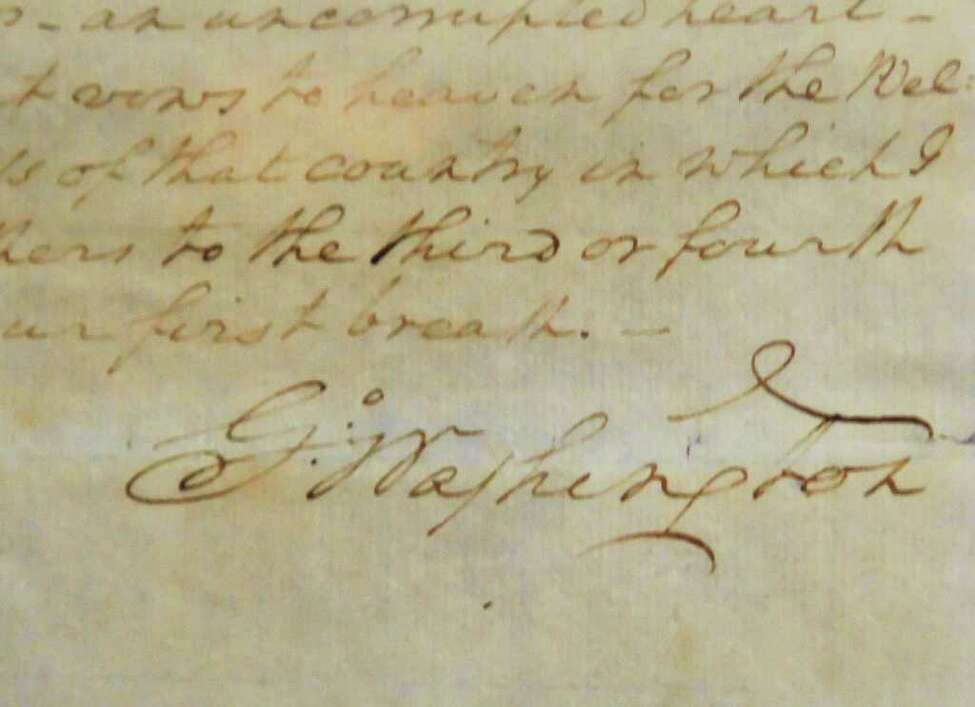 - an uncorrupted heart -
t vows to heaven for the Wel
of that country in which I
hers to the third or fourth
ur first breath. -
G:Washington